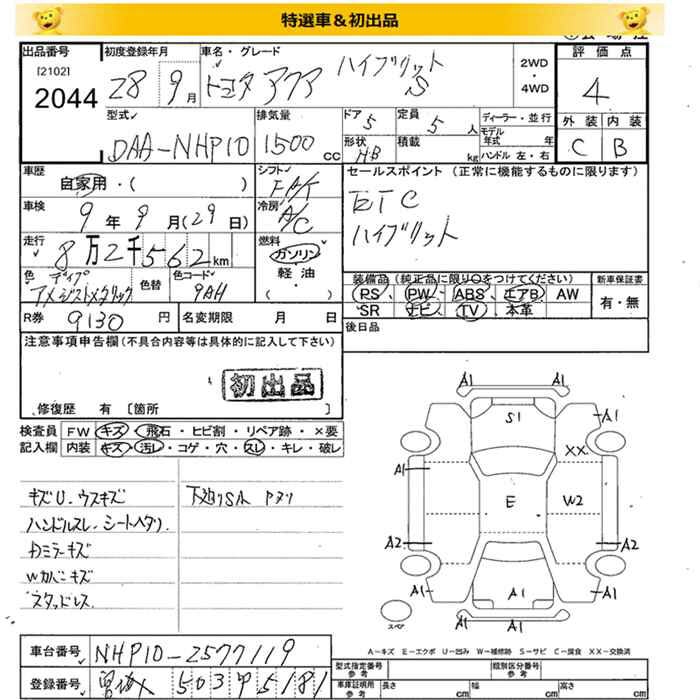 特選車&初出品
出品番号 初度登録年月 車名・グレード 評価点
[2102]
2044 28 9月 トヨタ アクア ハイブリット S 2WD・4WD 4
外装 内装
C B
型式 排気量 ドア 定員 ディーラー・並行
DAA-NHP10 1500cc 5 5人 モデル年式 年
形状 H・B 積載 kg ハンドル 左・右
車歴 シフト セールスポイント (正常に機能するものに限ります)
自家用・( ) FAT ETC
車検 冷房 ハイブリット
9年9月(29日) A/C
走行 燃料
8万2千562km ガソリン・軽油
( )
色 色替 色コード 装備品(純正品に限り○をつけてください) 新車保証書
ディープアメジストメタリック 9AH PS、PW、ABS、エアB、AW 有・無
SR ナビ、TV、本革
R券 9130円 名変期限 月 日 後日品
注意事項申告欄(不具合内容等は具体的に記入して下さい)
初出品
修復歴 有 [箇所 ]
検査員 FW キズ・飛石・ヒビ割・リペア跡・×要
記入欄 内装 キズ・汚レ・コゲ・穴・スレ・キレ・破レ
キズU.ウスキズ 下廻りSA Pヌリ
ハンドルスレ.シートヘタリ.
Dミラーキズ
Wカバーキズ
スタッドレス
A1 A1
A1 S1 A1
XX
A1
E W2
A2 A2
A1 A1 A1
A1 A1
スペア
A-キズ E-エクボ U-凹み W-補修跡 S-サビ C-腐食 XX-交換済
車台番号 NHP10-2577119
登録番号 503 5181
型式指定番号 参考 類別区分番号 参考
車庫証明用 参考 長さ cm 幅 cm 高さ cm